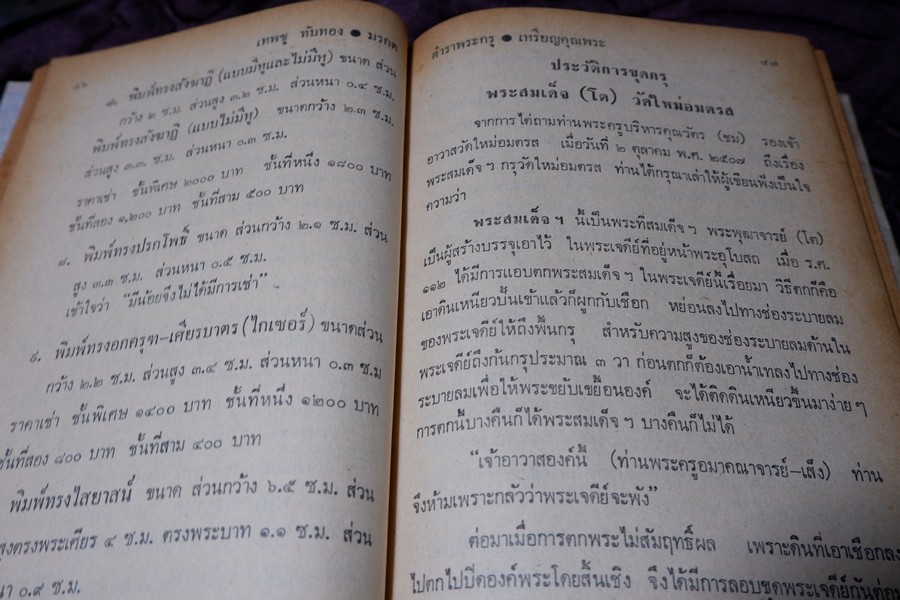 ๑๖ เทพชู ทับทอง ● มรกต
๗. พิมพ์ทรงสังฆาฏิ (แบบมีหูและไม่มีหู) ขนาด ส่วน
กว้าง ๒ ซ.ม. ส่วนสูง ๓.๒ ซ.ม. ส่วนหนา ๐.๔ ซ.ม.
พิมพ์ทรงสังฆาฏิ (แบบไม่มีหู) ขนาดกว้าง ๒.๓ ซ.ม.
ส่วนสูง ๓.๓. ซ.ม. ส่วนหนา ๐.๓ ซ.ม.
ราคาเช่า ชั้นพิเศษ ๒๐๐๐ บาท ชั้นที่หนึ่ง ๑๘๐๐ บาท
ชั้นที่สอง ๑,๒๐๐ บาท ชั้นที่สาม ๕๐๐ บาท
๘. พิมพ์ทรงปรกโพธิ์ ขนาด ส่วนกว้าง ๒.๑ ซ.ม. ส่วน
สูง ๓.๓ ซ.ม. ส่วนหนา ๐.๕ ซ.ม.
เข้าใจว่า “มีน้อยจึงไม่ได้มีการเช่า”
๙. พิมพ์ทรงอกครุฑ–เศียรบาตร (ไกเซอร์) ขนาดส่วน
กว้าง ๒.๒ ซ.ม. ส่วนสูง ๓.๔ ซ.ม. ส่วนหนา ๐.๓ ซ.ม
ราคาเช่า ชั้นพิเศษ ๑๔๐๐ บาท ชั้นที่หนึ่ง ๑๒๐๐ บาท
ชั้นที่สอง ๘๐๐ บาท ชั้นที่สาม ๔๐๐ บาท
พิมพ์ทรงไสยาสน์ ขนาด ส่วนกว้าง ๖.๕ ซ.ม. ส่วน
สูงตรงพระเศียร ๔ ซ.ม. ตรงพระบาท ๑.๑ ซ.ม. ส่วน
นา ๐.๙ ซ.ม.
ตำราพระกรุ ● เหรียญคุณพระ ๑๗
ประวัติการขุดกรุ
พระสมเด็จ (โต) วัดใหม่อมตรส
จากการไต่ถามท่านพระครูบริหารคุณวัตร (ชม) รองเจ้า
อาวาสวัดใหม่อมตรส เมื่อวันที่ ๒ ตุลาคม พ.ศ. ๒๕๐๗ ถึงเรื่อง
พระสมเด็จฯ กรุวัดใหม่อมตรส ท่านได้กรุณาเล่าให้ผู้เขียนฟังเป็นใจ
ความว่า
พระสมเด็จฯ นี้เป็นพระที่สมเด็จฯ พระพุฒาจารย์ (โต)
เป็นผู้สร้างบรรจุเอาไว้ ในพระเจดีย์ที่อยู่หน้าพระอุโบสถ เมื่อ ร.ศ.
๑๑๒ ได้มีการแอบตกพระสมเด็จฯ ในพระเจดีย์นี้เรื่อยมา วิธีตกก็คือ
เอาดินเหนียวปั้นเข้าแล้วก็ผูกกับเชือก หย่อนลงไปทางช่องระบายลม
ของพระเจดีย์ให้ถึงพื้นกรุ สำหรับความสูงของช่องระบายลมด้านใน
พระเจดีย์ถึงก้นกรุประมาณ ๓ วา ก่อนตกก็ต้องเอาน้ำเทลงไปทางช่อง
ระบายลมเพื่อให้พระขยับเขยื้อนองค์ จะได้ติดดินเหนียวขึ้นมาง่ายๆ
การตกนี้บางคืนก็ได้พระสมเด็จฯ บางคืนก็ไม่ได้
“เจ้าอาวาสองค์นี้ (ท่านพระครูอมาคณาจารย์–เส็ง) ท่าน
จึงห้ามเพราะกลัวว่าพระเจดีย์จะพัง”
ต่อมาเมื่อการตกพระไม่สัมฤทธิ์ผล เพราะดินที่เอาเชือกลง
ไปตกไปปิดองค์พระโดยสิ้นเชิง จึงได้มีการลอบขุดพระเจดีย์กันต่อ